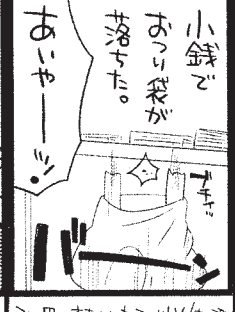 小銭で
おつり袋が
落ちた。
あいやーーッ!
ブチィッ